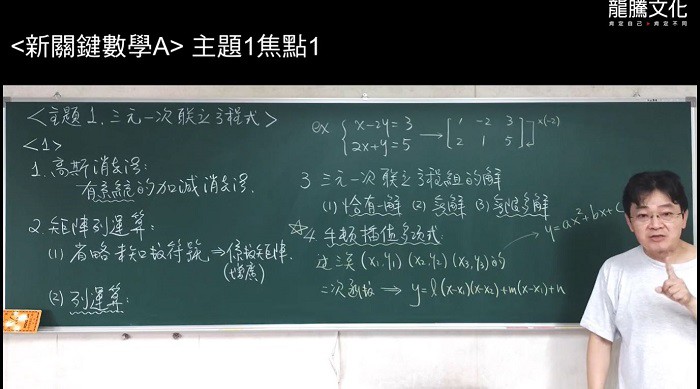 龍騰文化
肯定自己 肯定不同
<新關鍵數學A> 主題1焦點1
<主題1. 三元一次聯立方程式>
<1>
1. 高斯消去法:
有系統的加減消去法.
2. 矩陣列運算:
(1) 省略未知數符號 ⇒ 係數矩陣.
(增廣)
(2) 列運算:
ex { x-2y=3 → [ 1 -2 3 ] ×(-2)
2x+y=5 [ 2 1 5 ]
3 三元一次聯立方程組的解
(1) 恰有一解 (2) 無解 (3) 無限多解
☆4. 牛頓插值多項式:
過三點 (x₁,y₁) (x₂,y₂) (x₃,y₃) 的
y=ax²+bx+c
二次函數 ⇒ y=l(x-x₁)(x-x₂)+m(x-x₁)+n